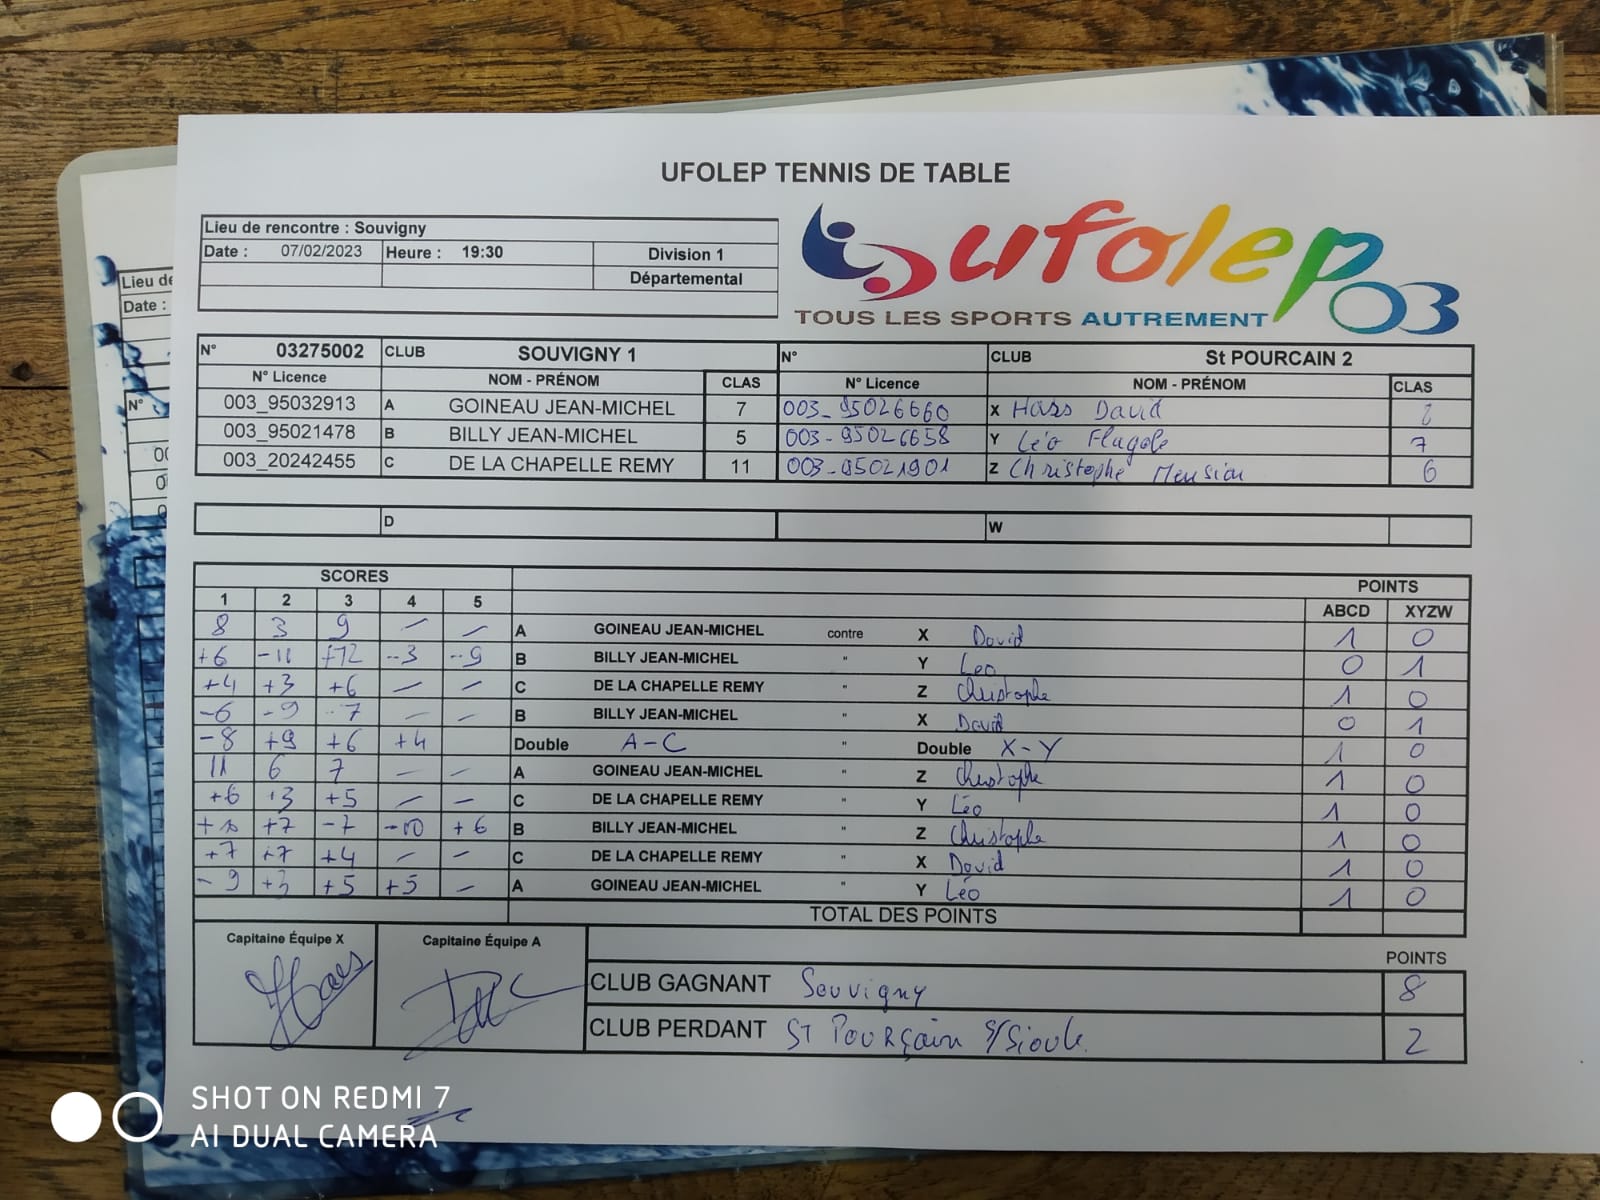 UFOLEP TENNIS DE TABLE
Lieu de rencontre : Souvigny
Date : 07/02/2023 Heure : 19:30 Division 1
Départemental
ufolep 03
TOUS LES SPORTS AUTREMENT
Lieu de
Date :
N°
N° 03275002 CLUB SOUVIGNY 1 N° CLUB St POURCAIN 2
N° Licence NOM - PRÉNOM CLAS N° Licence NOM - PRÉNOM CLAS
003_95032913 A GOINEAU JEAN-MICHEL 7 003_95026660 X Haas David
003_95021478 B BILLY JEAN-MICHEL 5 003-95026658 Y Léo Flagole 7
003_20242455 C DE LA CHAPELLE REMY 11 003-95021901 Z Christophe Mension 6
D W
SCORES POINTS
1 2 3 4 5 ABCD XYZW
8 3 9 — — A GOINEAU JEAN-MICHEL contre X David 1 0
+6 -11 +12 -3 -9 B BILLY JEAN-MICHEL " Y Leo 0 1
+4 +3 +6 — — C DE LA CHAPELLE REMY " Z Christophe 1 0
-6 -9 -7 — — B BILLY JEAN-MICHEL " X David 0 1
-8 +9 +6 +4 Double A-C " Double X-Y 1 0
11 6 7 — — A GOINEAU JEAN-MICHEL " Z Christophe 1 0
+6 +3 +5 — — C DE LA CHAPELLE REMY " Y Léo 1 0
+10 +7 -7 -10 +6 B BILLY JEAN-MICHEL " Z Christophe 1 0
+7 +7 +4 — — C DE LA CHAPELLE REMY " X David 1 0
-9 +3 +5 +5 — A GOINEAU JEAN-MICHEL " Y Léo 1 0
TOTAL DES POINTS
Capitaine Équipe X Capitaine Équipe A POINTS
Haas
CLUB GAGNANT Souvigny 8
CLUB PERDANT ST Pourçain s/Sioule 2
SHOT ON REDMI 7
AI DUAL CAMERA